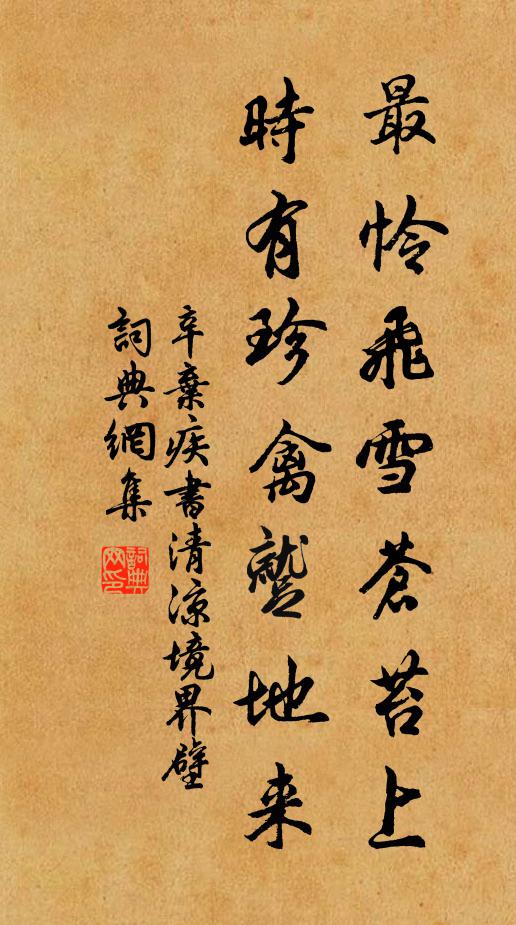 最怜飛雪蒼苔上
時有珍禽蹵地来
辛棄疾書清涼境界壁
詞典網集
詞典网印